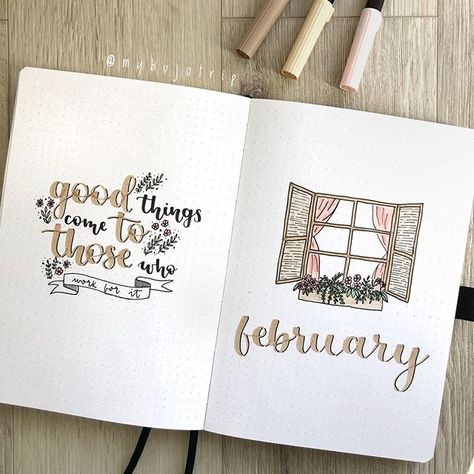 @mybujotrip
good things
come to
those who
work for it
february